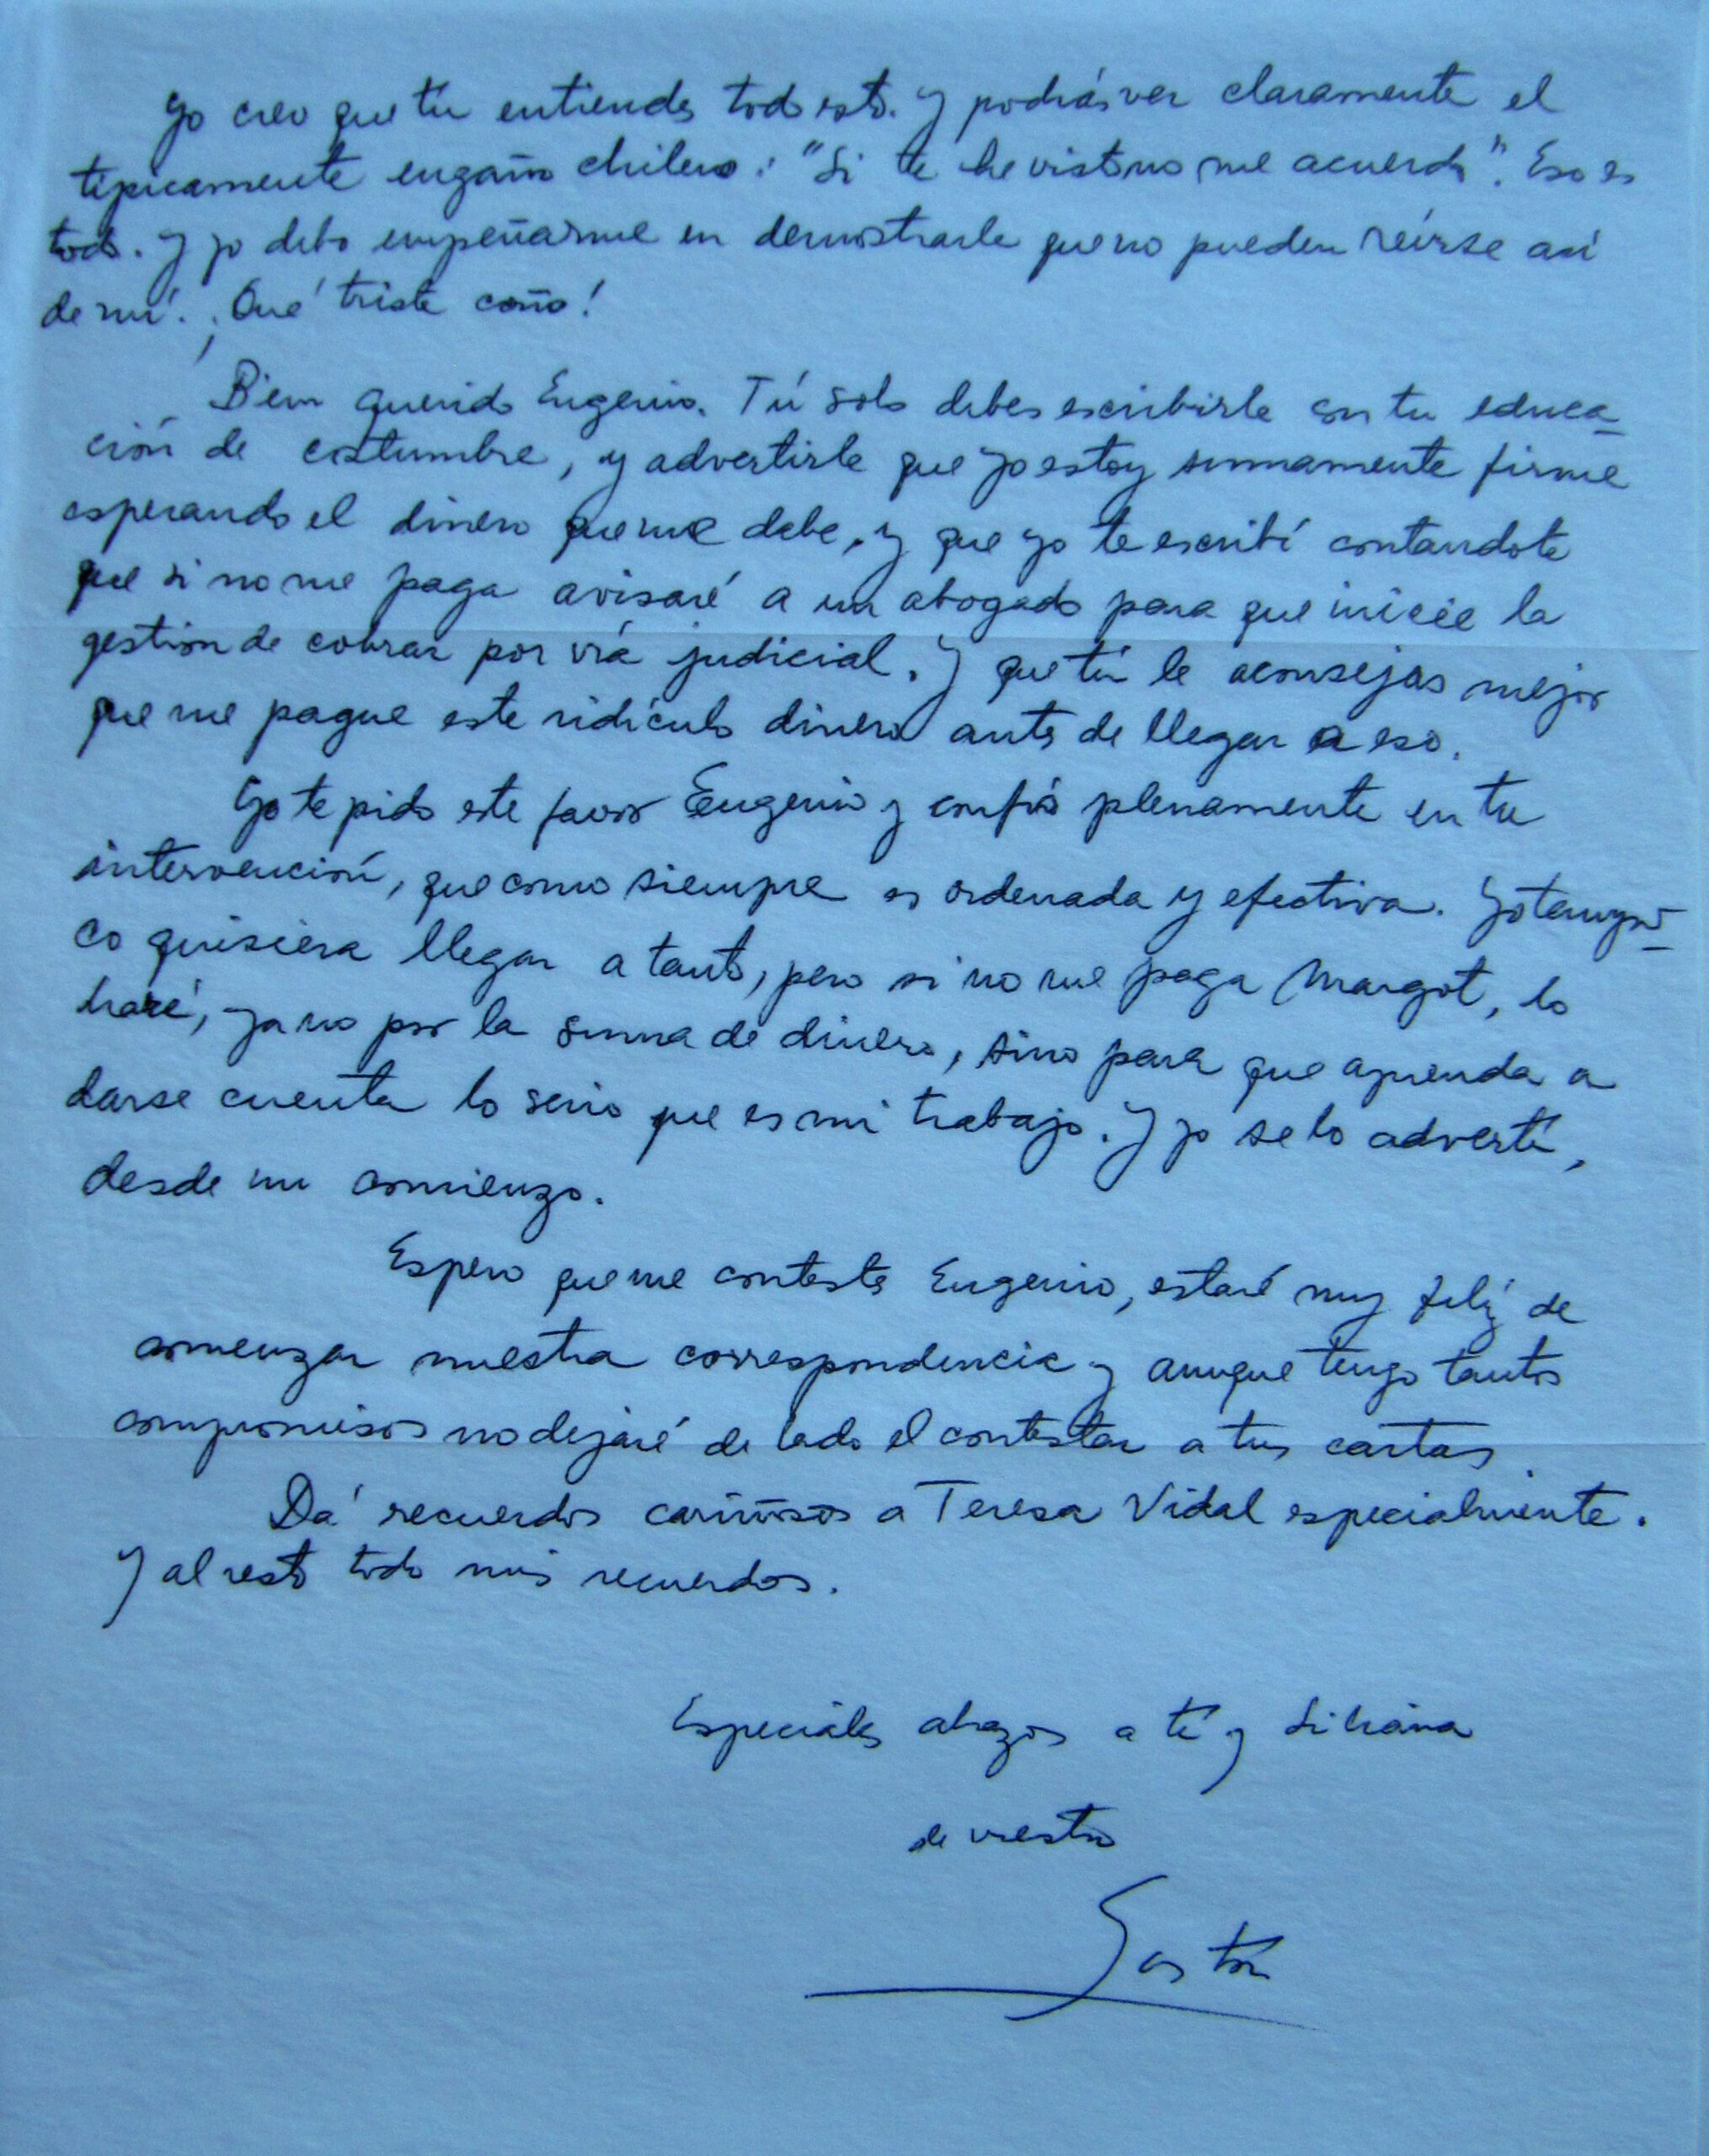 Yo creo que tú entiendes todo esto. Y podrás ver claramente el
típicamente engaño chileno: "Si te he visto no me acuerdo". Eso es
todo. Y yo debo empeñarme en demostrarle que no pueden reírse así
de mí. ¡Qué triste coño!
Bien querido Eugenio. Tú solo debes escribirle con tu educa-
ción de costumbre, y advertirle que yo estoy sumamente firme
esperando el dinero que me debe, y que yo te escribí contandote
que si no me paga avisaré a un abogado para que inicie la
gestión de cobrar por vía judicial. Y que tú le aconsejas mejor
que me pague este ridículo dinero antes de llegar a eso.
Yo te pido este favor Eugenio y confío plenamente en tu
intervención, que como siempre es ordenada y efectiva. Yo tampo-
co quisiera llegar a tanto, pero si no me paga Margot, lo
haré, ya no por la suma de dinero, sino para que aprenda a
darse cuenta lo serio que es mi trabajo. Y yo se lo advertí,
desde un comienzo.
Espero que me contestes Eugenio, estaré muy felíz de
comenzar nuestra correspondencia y aunque tengo tantos
compromisos no dejaré de lado el contestar a tus cartas.
Dá recuerdos cariñosos a Teresa Vidal especialmente.
Y al resto todo mis recuerdos.
Especiales abrazos a tí y Liliana
de vuestro
Gastón